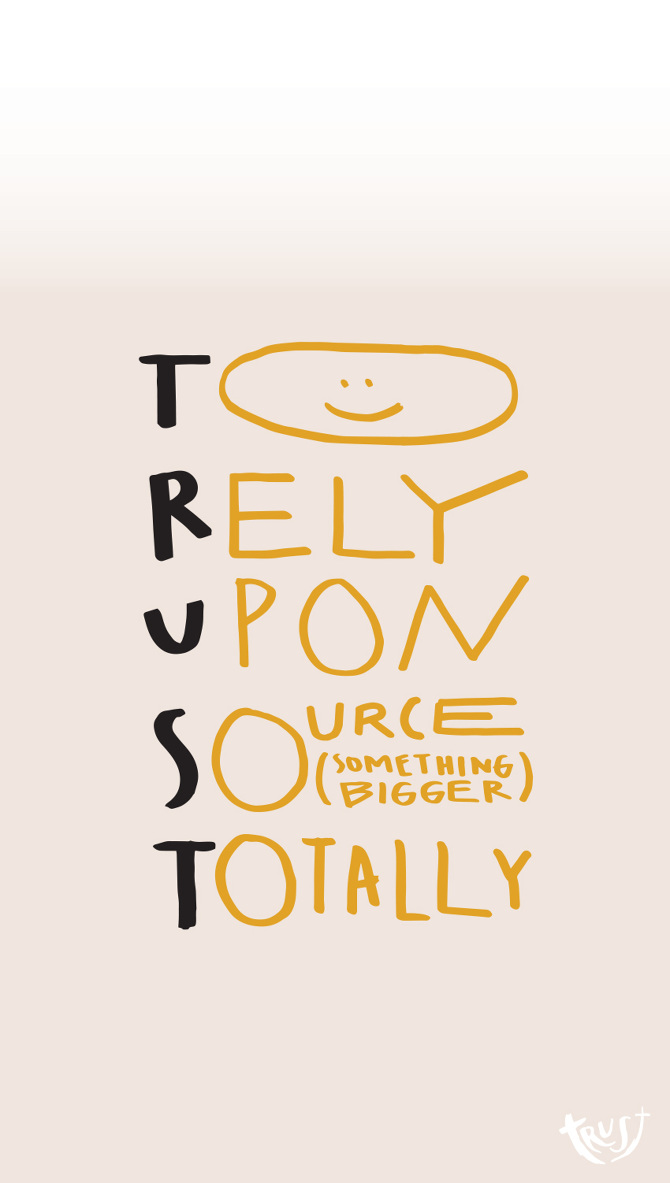 TO
RELY
UPON
SOURCE
(SOMETHING
BIGGER)
TOTALLY
TRUST